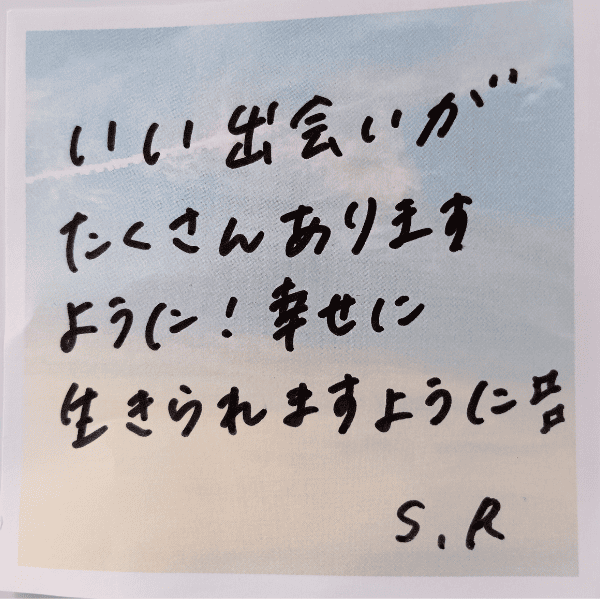 いい出会いが
たくさんあります
ように！幸せに
生きられますように
S.R